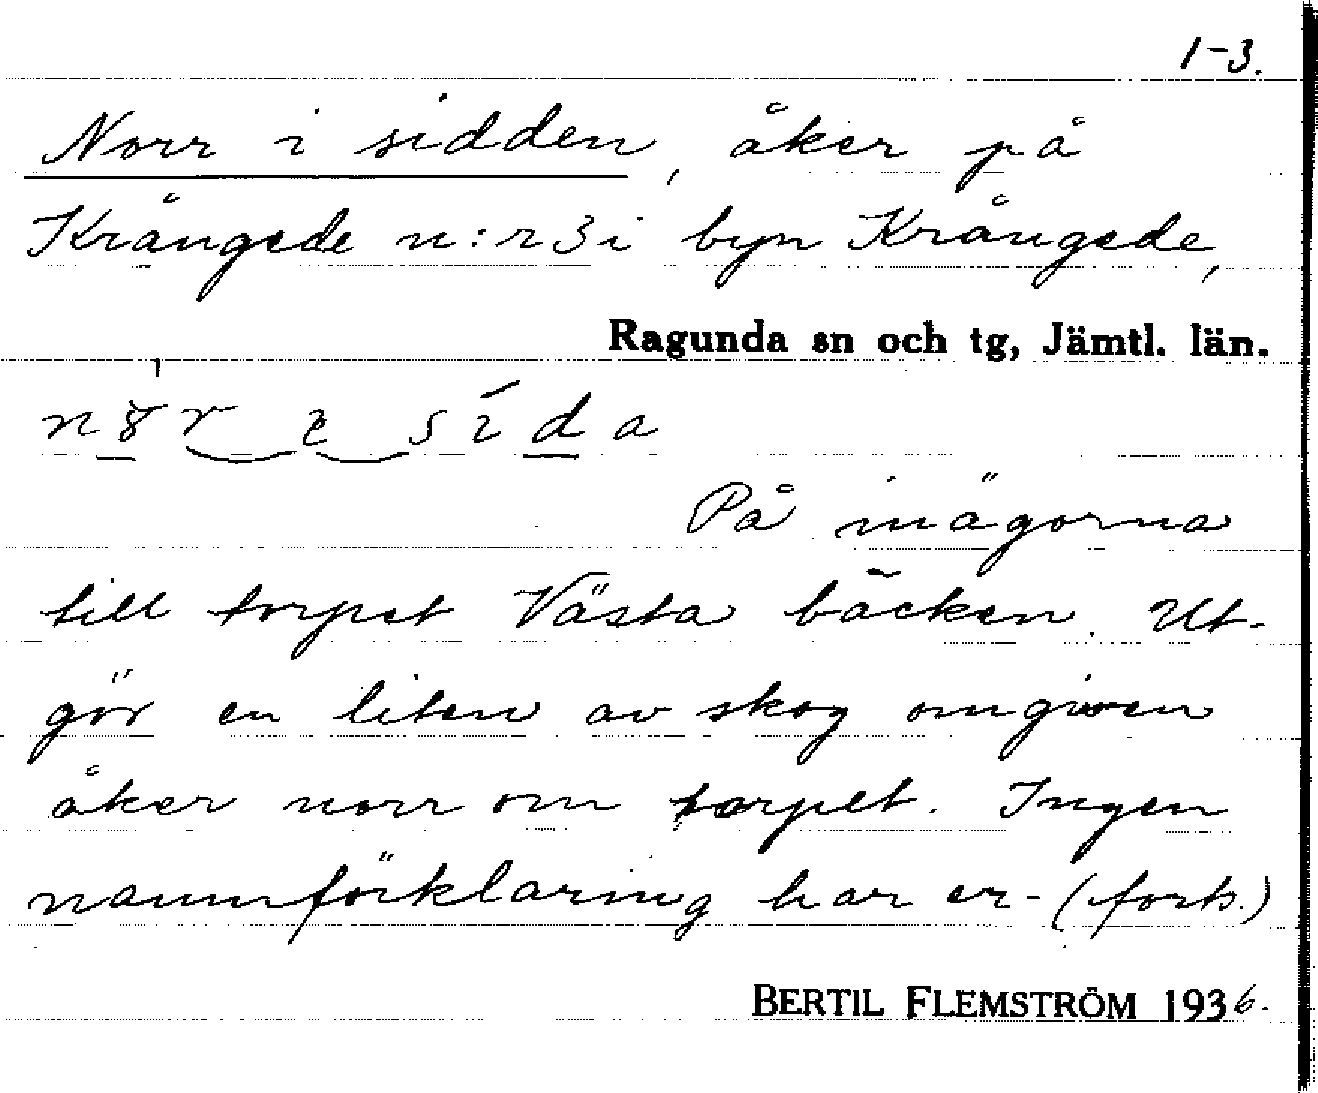 1-3.
Norr i sidden, åker på
Krångede n:r 3 i byn Krångede,
Ragunda sn och tg, Jämtl. län.
På inägorna
till torpet Västa bäcken. Ut-
gör en liten av skog omgiven
åker norr om torpet. Ingen
namnförklaring har er- (forts.)
BERTIL FLEMSTRÖM 1936.